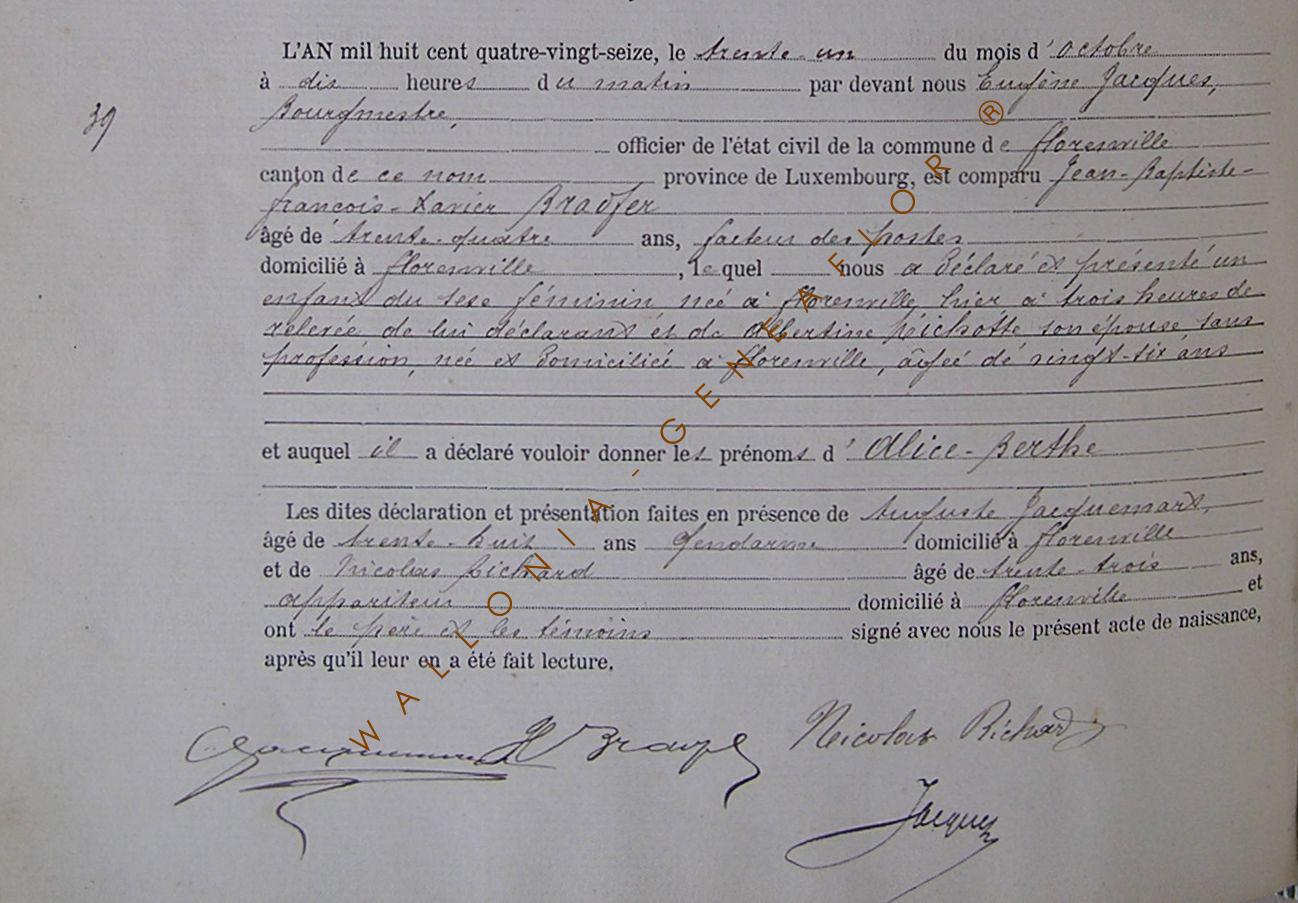 L'AN mil huit cent quatre-vingt-seize, le trente-un du mois d'octobre
à dix heures du matin par devant nous Eugène Jacques,
39
Bourgmestre,
officier de l'état civil de la commune de Florenville
canton de ce nom province de Luxembourg, est comparu Jean-Baptiste-
françois-Xavier Bradfer
âgé de trente-quatre ans, facteur des postes
domicilié à florenville, lequel nous a déclaré et présenté un
enfant du sexe féminin née à florenville, hier à trois heures de
relevée de lui déclarant et de Albertine son épouse sans
profession, née et domiciliée à florenville, âgée de vingt-six ans
et auquel il a déclaré vouloir donner les prénoms d'Alice-Berthe
Les dites déclaration et présentation faites en présence de Auguste Jacquemart,
âgé de trente-huit ans Gendarme domicilié à florenville
et de Nicolas Richard âgé de trente-trois ans,
appariteur domicilié à florenville et
ont le père et les témoins signé avec nous le présent acte de naissance,
après qu'il leur en a été fait lecture.
Nicolas Richard
Jacques
WALLONIA-GENEAFLOR ®